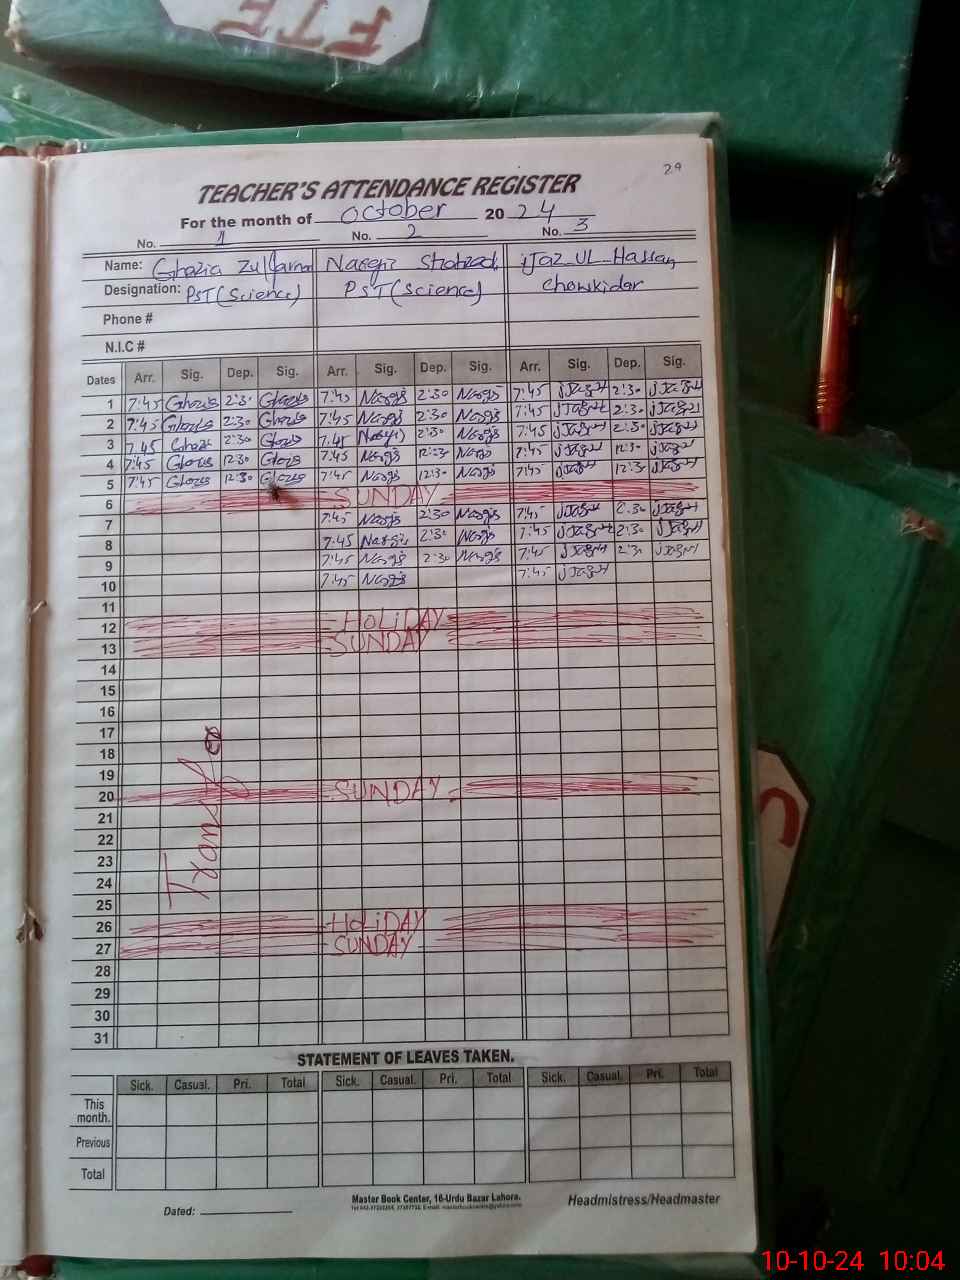 FTF
29
TEACHER'S ATTENDANCE REGISTER
For the month of October 2024
No. 1 No. 2 No. 3
Name: Ghazia Zulfarnai Nargis Shahzadi ijaz UL Hassan
Designation: PST (Science) PST (Science) Chowkidar
Phone #
N.I.C #
Dates Arr. Sig. Dep. Sig. Arr. Sig. Dep. Sig. Arr. Sig. Dep. Sig.
1 7:45 Ghazia 2:30 Ghazia 7:45 Nargis 2:30 Nargis 7:45 2:30
2 7:45 Ghazia 2:30 Ghazia 7:45 Nargis 2:30 Nargis 7:45 2:30
3 7:45 Ghazia 2:30 Ghazia 7:45 Nargis 2:30 Nargis 7:45 2:30
4 7:45 Ghazia 12:30 Ghazia 7:45 Nargis 12:30 Nargis 7:45 12:30
5 7:45 Ghazia 12:30 Ghazia 7:45 Nargis 12:30 Nargis 7:45 12:30
6 SUNDAY
7 7:45 Nargis 2:30 Nargis 7:45 2:30
8 7:45 Nargis 2:30 Nargis 7:45 2:30
9 7:45 Nargis 2:30 Nargis 7:45 2:30
10 7:45 Nargis 7:45
11
12 HOLiDAY
13 SUNDAY
14
15
16
17
18
19
20 SUNDAY
21
22
23
24
25
26 HOLiDAY
27 SUNDAY
28
29
30
31
STATEMENT OF LEAVES TAKEN.
Sick. Casual. Pri. Total Sick. Casual. Pri. Total Sick. Casual. Pri. Total
This
month.
Previous
Total
Master Book Center, 16-Urdu Bazar Lahore.
Dated: Headmistress/Headmaster
10-10-24 10:04